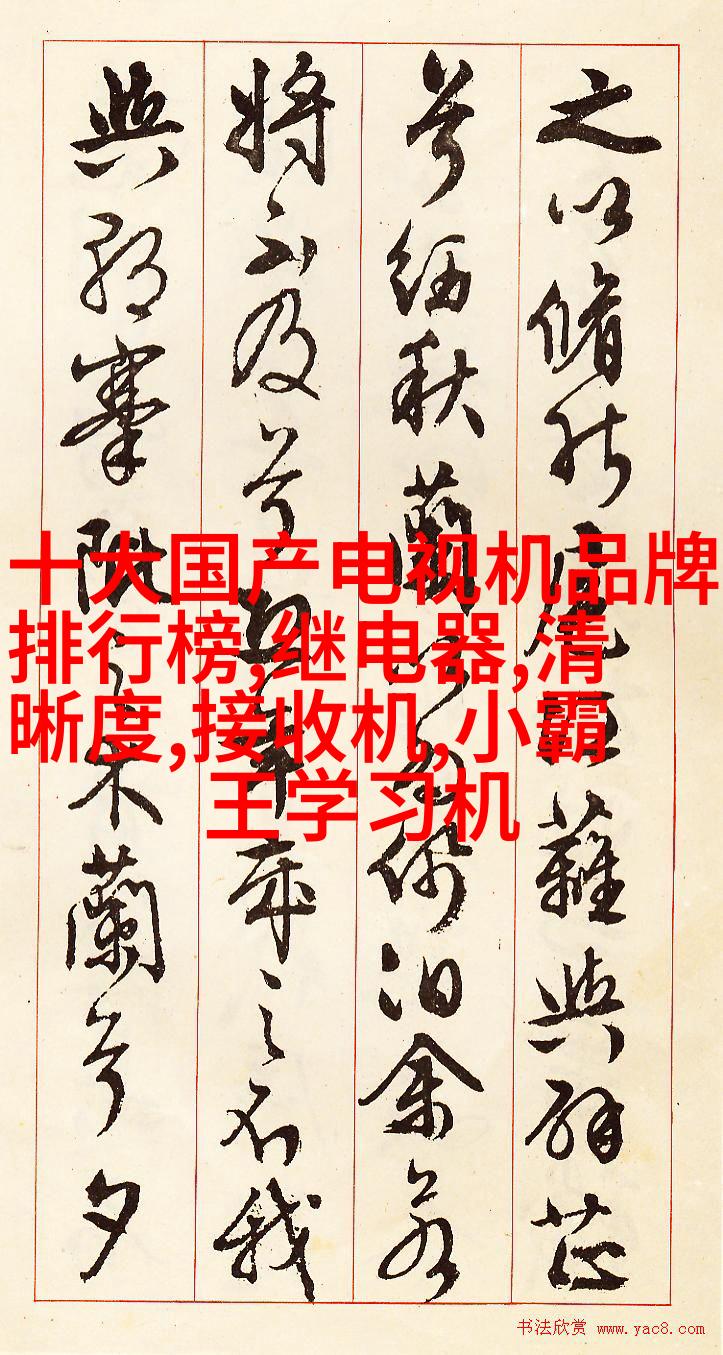 十大国产电视机品牌
排行榜,继电器,清
晰度,接收机,小霸
王学习机
之以脩能扈江蘺與辟芷
兮紉秋蘭以為佩汩余若
將不及兮恐年歲之不我
與朝搴阰之木蘭兮夕
书法欣赏 www.yac8.com